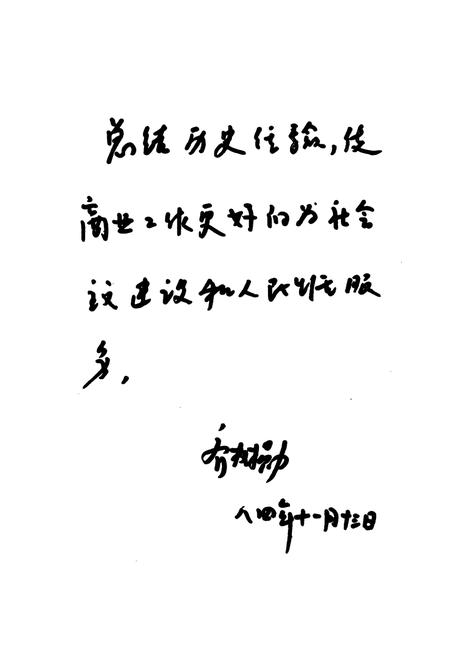 总结历史经验,使
商业工作更好的为社会
主义建设和人民生活服
务.
八四年十一月十三日